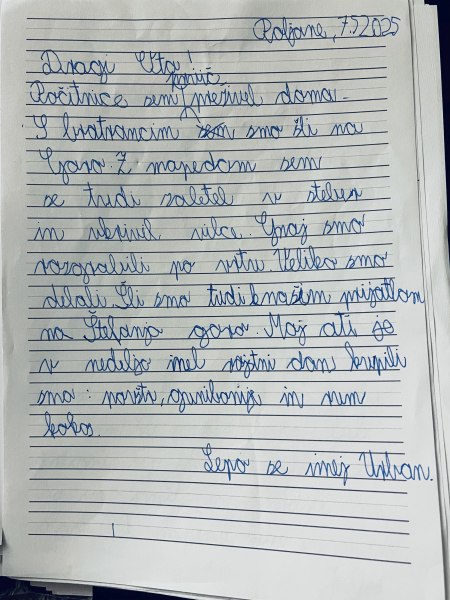 Poljane, 7.5.2025
Dragi Vta!
Počitnice sem največ preživel doma.
S bratrancim sem smo šli na
Goro. Z mopedom sem
se tudi zaletel v steber
in ukrivil vilce. Gnoj smo
razgrabili po vrtu. Veliko smo
delali. Šli smo tudi k našim prijatlom
na Štefanjo goro. Moj ati je
v nedeljo imel rojstni dan kupili
smo: 
in
koko.
Lepo se imej Urban.